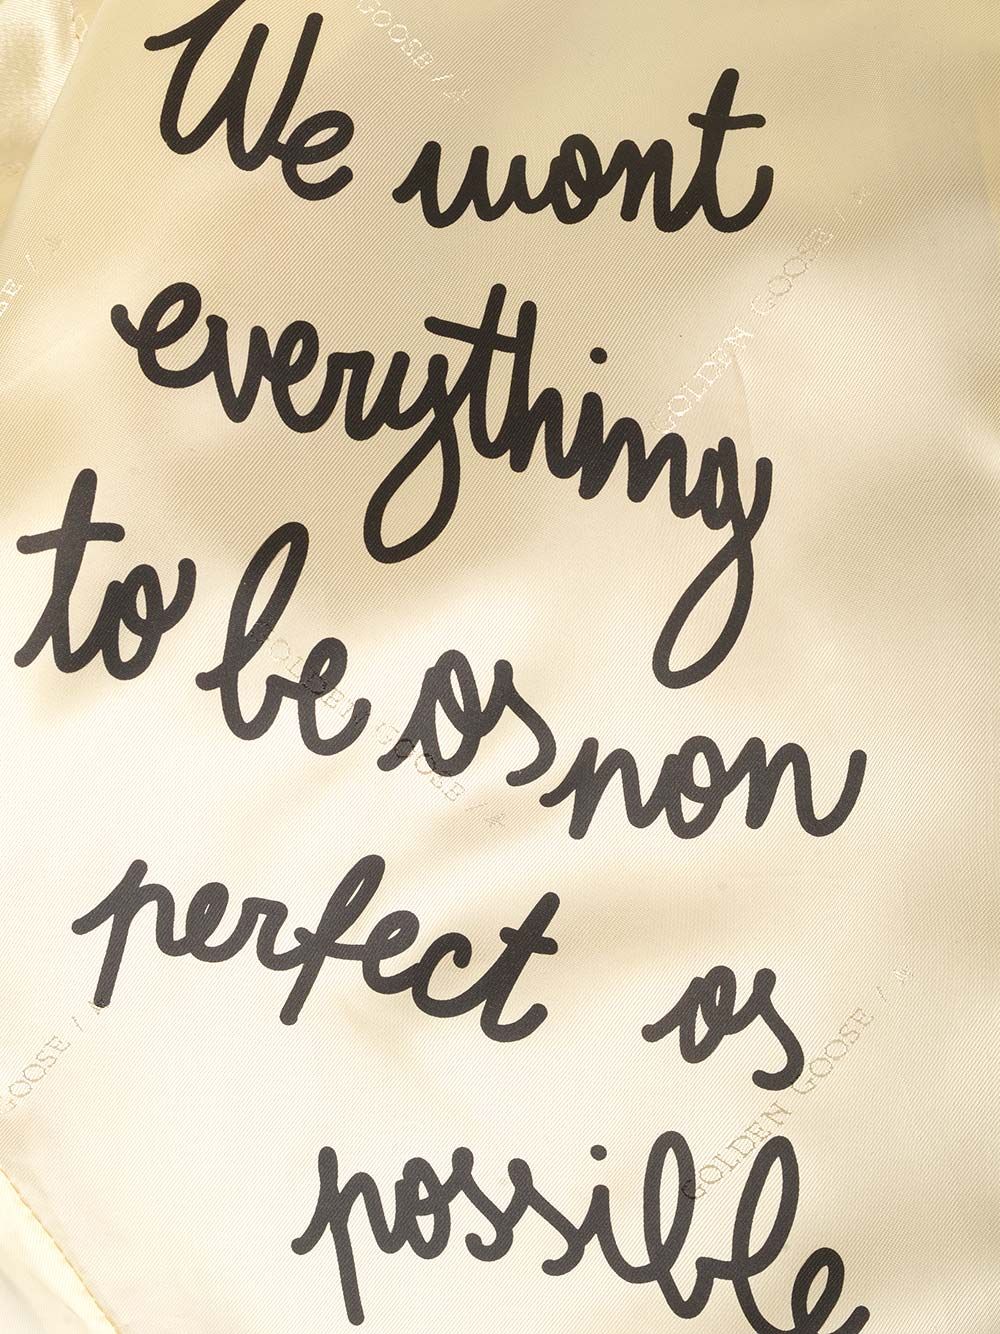 GOOSE /
We want
GOLDEN GOOSE /
everything
to be as non
GOLDEN GOOSE /
perfect as
GOOSE /
GOLDEN GOOSE /
possible